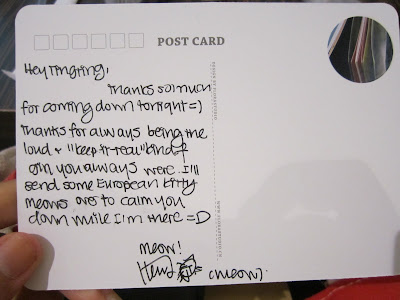 POST CARD
Hey Tingting,
Thanks so much
for coming down tonight =)
Thanks for always being the
loud & "keep it real" kind of
you always were. I'll
send some European kitty
meows over to calm you
down while I'm there =D
meow!
(meow).